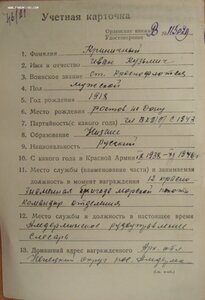 Учетная карточка
Орденская книжка В № 115020
Удостоверение
1. Фамилия Криничный
2. Имя и отчество Иван Кузьмич
3. Воинское звание ст. Краснофлотец
4. Пол мужской
5. Год рождения 1918
6. Место рождения Ростов на Дону
7. Партийность (с какого года) чл ВКП(б) с 1943
8. Образование Низшее
9. Национальность Русский
10. С какого года в Красной Армии с 1938 по 1946 г
11. Место службы (наименование части) и занимаемая
должность в момент награждения 12
бригада морской пехоты
командир отделения
12. Место службы и должность в настоящее время
Амдерминское рудоуправление
слесарь
13. Домашний адрес награжденного Арх. обл.
Ненецкий округ пос. Амдерма